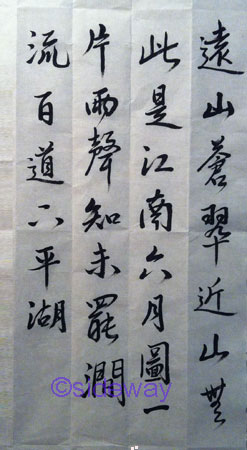 遠山蒼翠近山無
此是江南六月圖一
片雨聲知未罷澗
流百道下平湖
©sideway